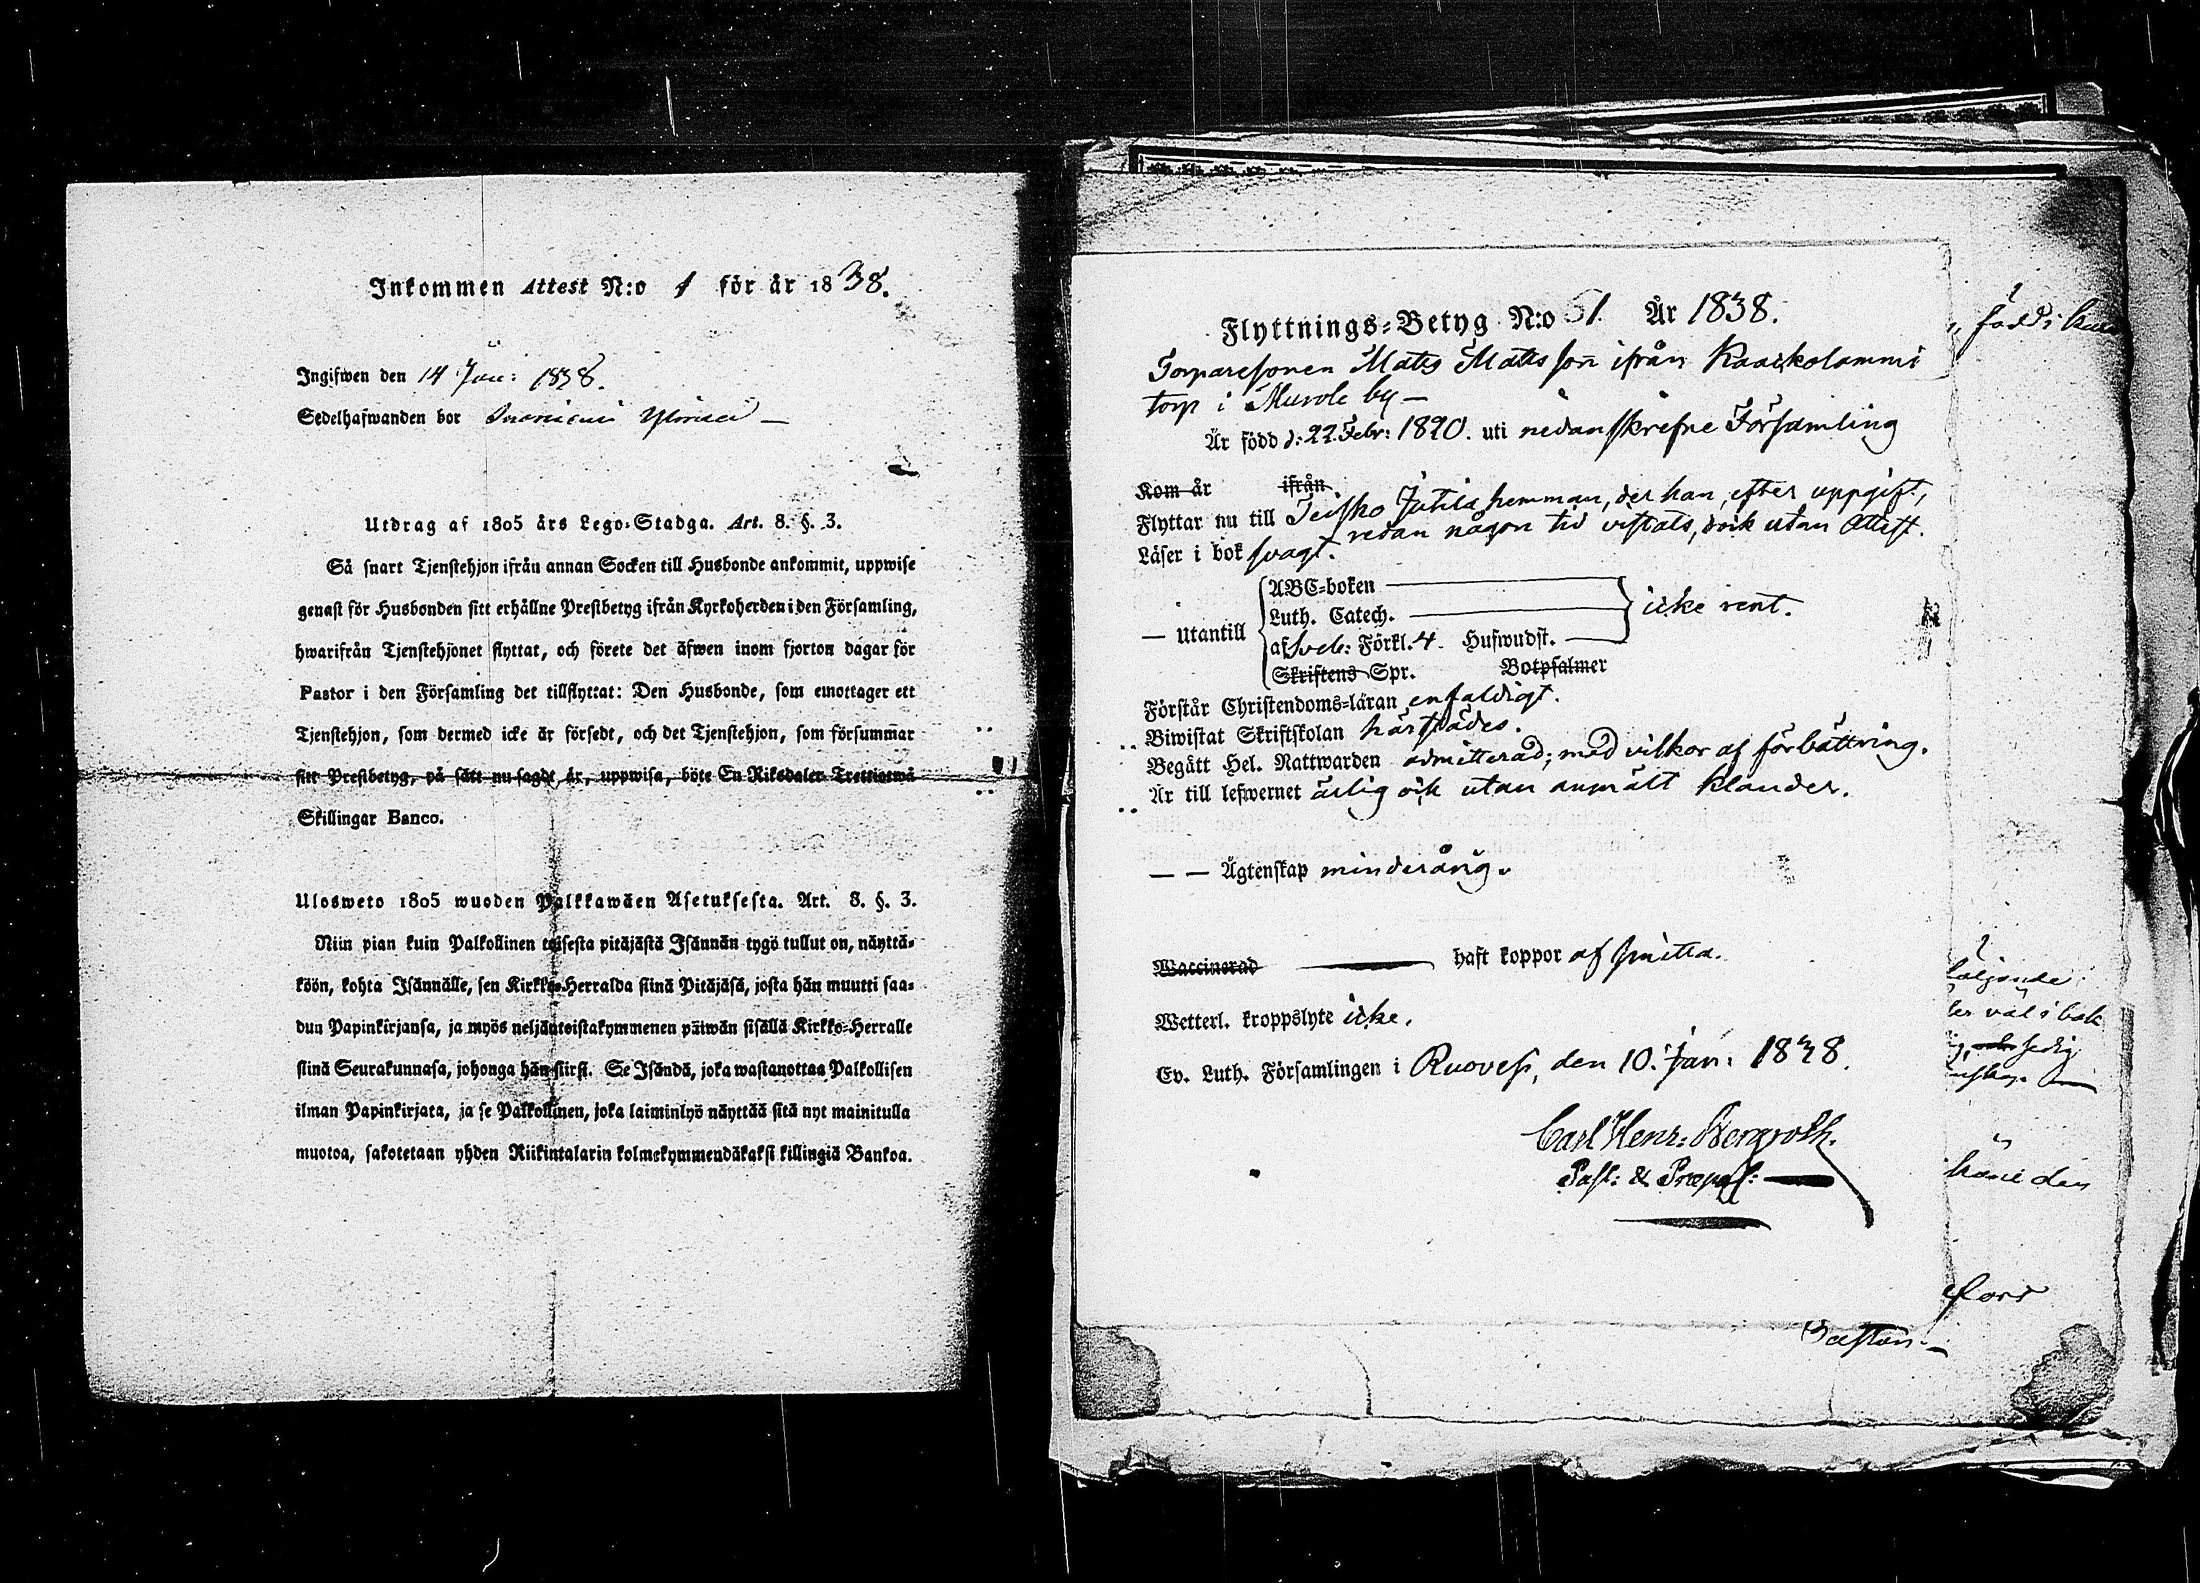 Inkommen Attest N:o 1 för år 1838.
Ingifwen den 14 Jan: 1838.
Sedelhafwanden bor
Utdrag af 1805 års Lego-Stadga. Art. 8. §. 3.
Så snart Tjenstehjon ifrån annan Socken till Husbonde ankommit, uppwise
genast för Husbonden sitt erhållne Prestbetyg ifrån Kyrkoherden i den Församling,
hwarifrån Tjenstehjonet flyttat, och förete det äfwen inom fjorton dagar för
Pastor i den Församling det tillflyttat: Den Husbonde, som emottager ett
Tjenstehjon, som dermed icke är försedt, och det Tjenstehjon, som försummar
sitt Prestbetyg, på sätt nu sagdt är, uppwisa, böte En Riksdaler Trettiotwå
Skillingar Banco.
Ulosweto 1805 wuoden Palkkawäen Asetuksesta. Art. 8. §. 3.
Niin pian kuin Palkollinen toisesta pitäjästä Isännän tygö tullut on, näyttä-
köön, kohta Isännälle, sen Kirkko-Herralda siinä Pitäjäsä, josta hän muutti saa-
dun Papinkirjansa, ja myös neljäntoistakymmenen päiwän sisällä Kirkko-Herralle
siinä Seurakunnasa, johonga hän siirsi. Se Isändä, joka wastanottaa Palkollisen
ilman Papinkirjata, ja se Palkollinen, joka laiminlyö näyttää sitä nyt mainitulla
muotoa, sakotetaan yhden Riikintalarin kolmekymmendäkaksi killingiä Bankoa.
Flyttnings-Betyg N:o 51. År 1838.
Torparesonen Mats Matsson ifrån Kaaskolammi
torp i Murole by —
Är född d: 22 Febr: 1820. uti nedanskrefne Församling
Kom år ifrån
Flyttar nu till Teisko Jutila hemman, der han, efter uppgift,
redan någon tid vistats, dock utan Attest.
Läser i bok svagt.
— Utantill
ABC-boken
Luth. Catech. icke rent.
af Sveb: Förkl. 4. Hufwudst.
Skriftens Spr. Botpsalmer
Förstår Christendoms-läran enfaldigt.
Biwistat Skriftskolan härstädes.
Begått Hel. Nattwarden admitterad; med vilkor af förbättring.
Är till lefwernet ärlig och utan anmält klander.
— — Ägtenskap minderårig.
Waccinerad haft koppor af smitta.
Wetterl. kroppslyte icke.
Ev. Luth. Församlingen i Ruovesi, den 10. Jan: 1838.
Carl Henr: Bergroth.
Past: & Præpos:
född i
följande
väl i bok
sedig